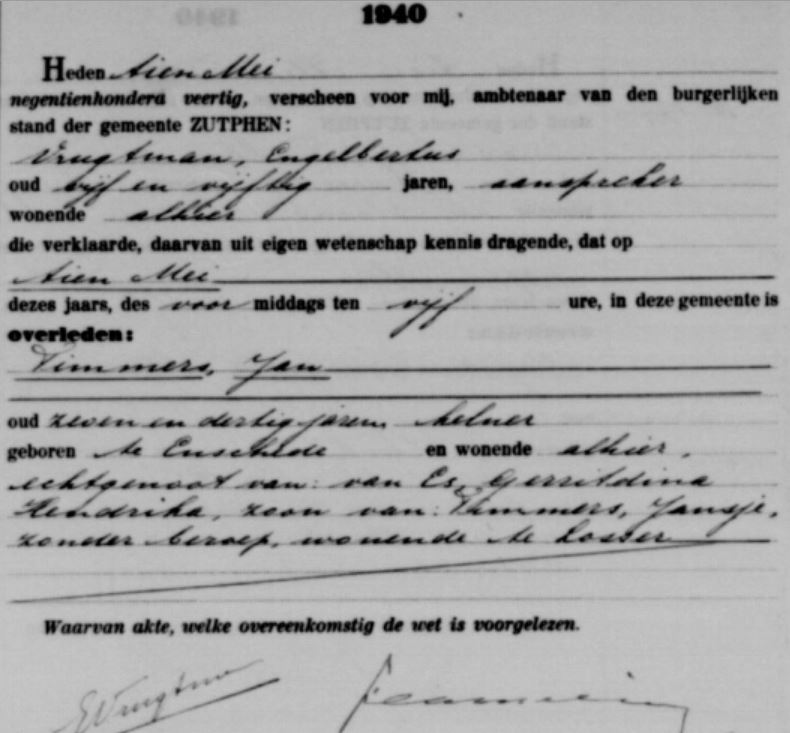 1940
Heden tien Mei
negentienhonderd veertig, verscheen voor mij, ambtenaar van den burgerlijken
stand der gemeente ZUTPHEN:
Vrugtman, Engelbertus
oud vijf en vijftig jaren, aanspreker
wonende alhier
die verklaarde, daarvan uit eigen wetenschap kennis dragende, dat op
tien Mei
dezes jaars, des voor middags ten vijf ure, in deze gemeente is
overleden:
Timmers, Jan
oud zeven en dertig jaren, kelner
geboren te Enschede en wonende alhier,
echtgenoot van: van Es, Gerritdina
Hendrika, zoon van: Timmers, Jansje,
zonder beroep, wonende te Losser
Waarvan akte, welke overeenkomstig de wet is voorgelezen.
EVrugtman